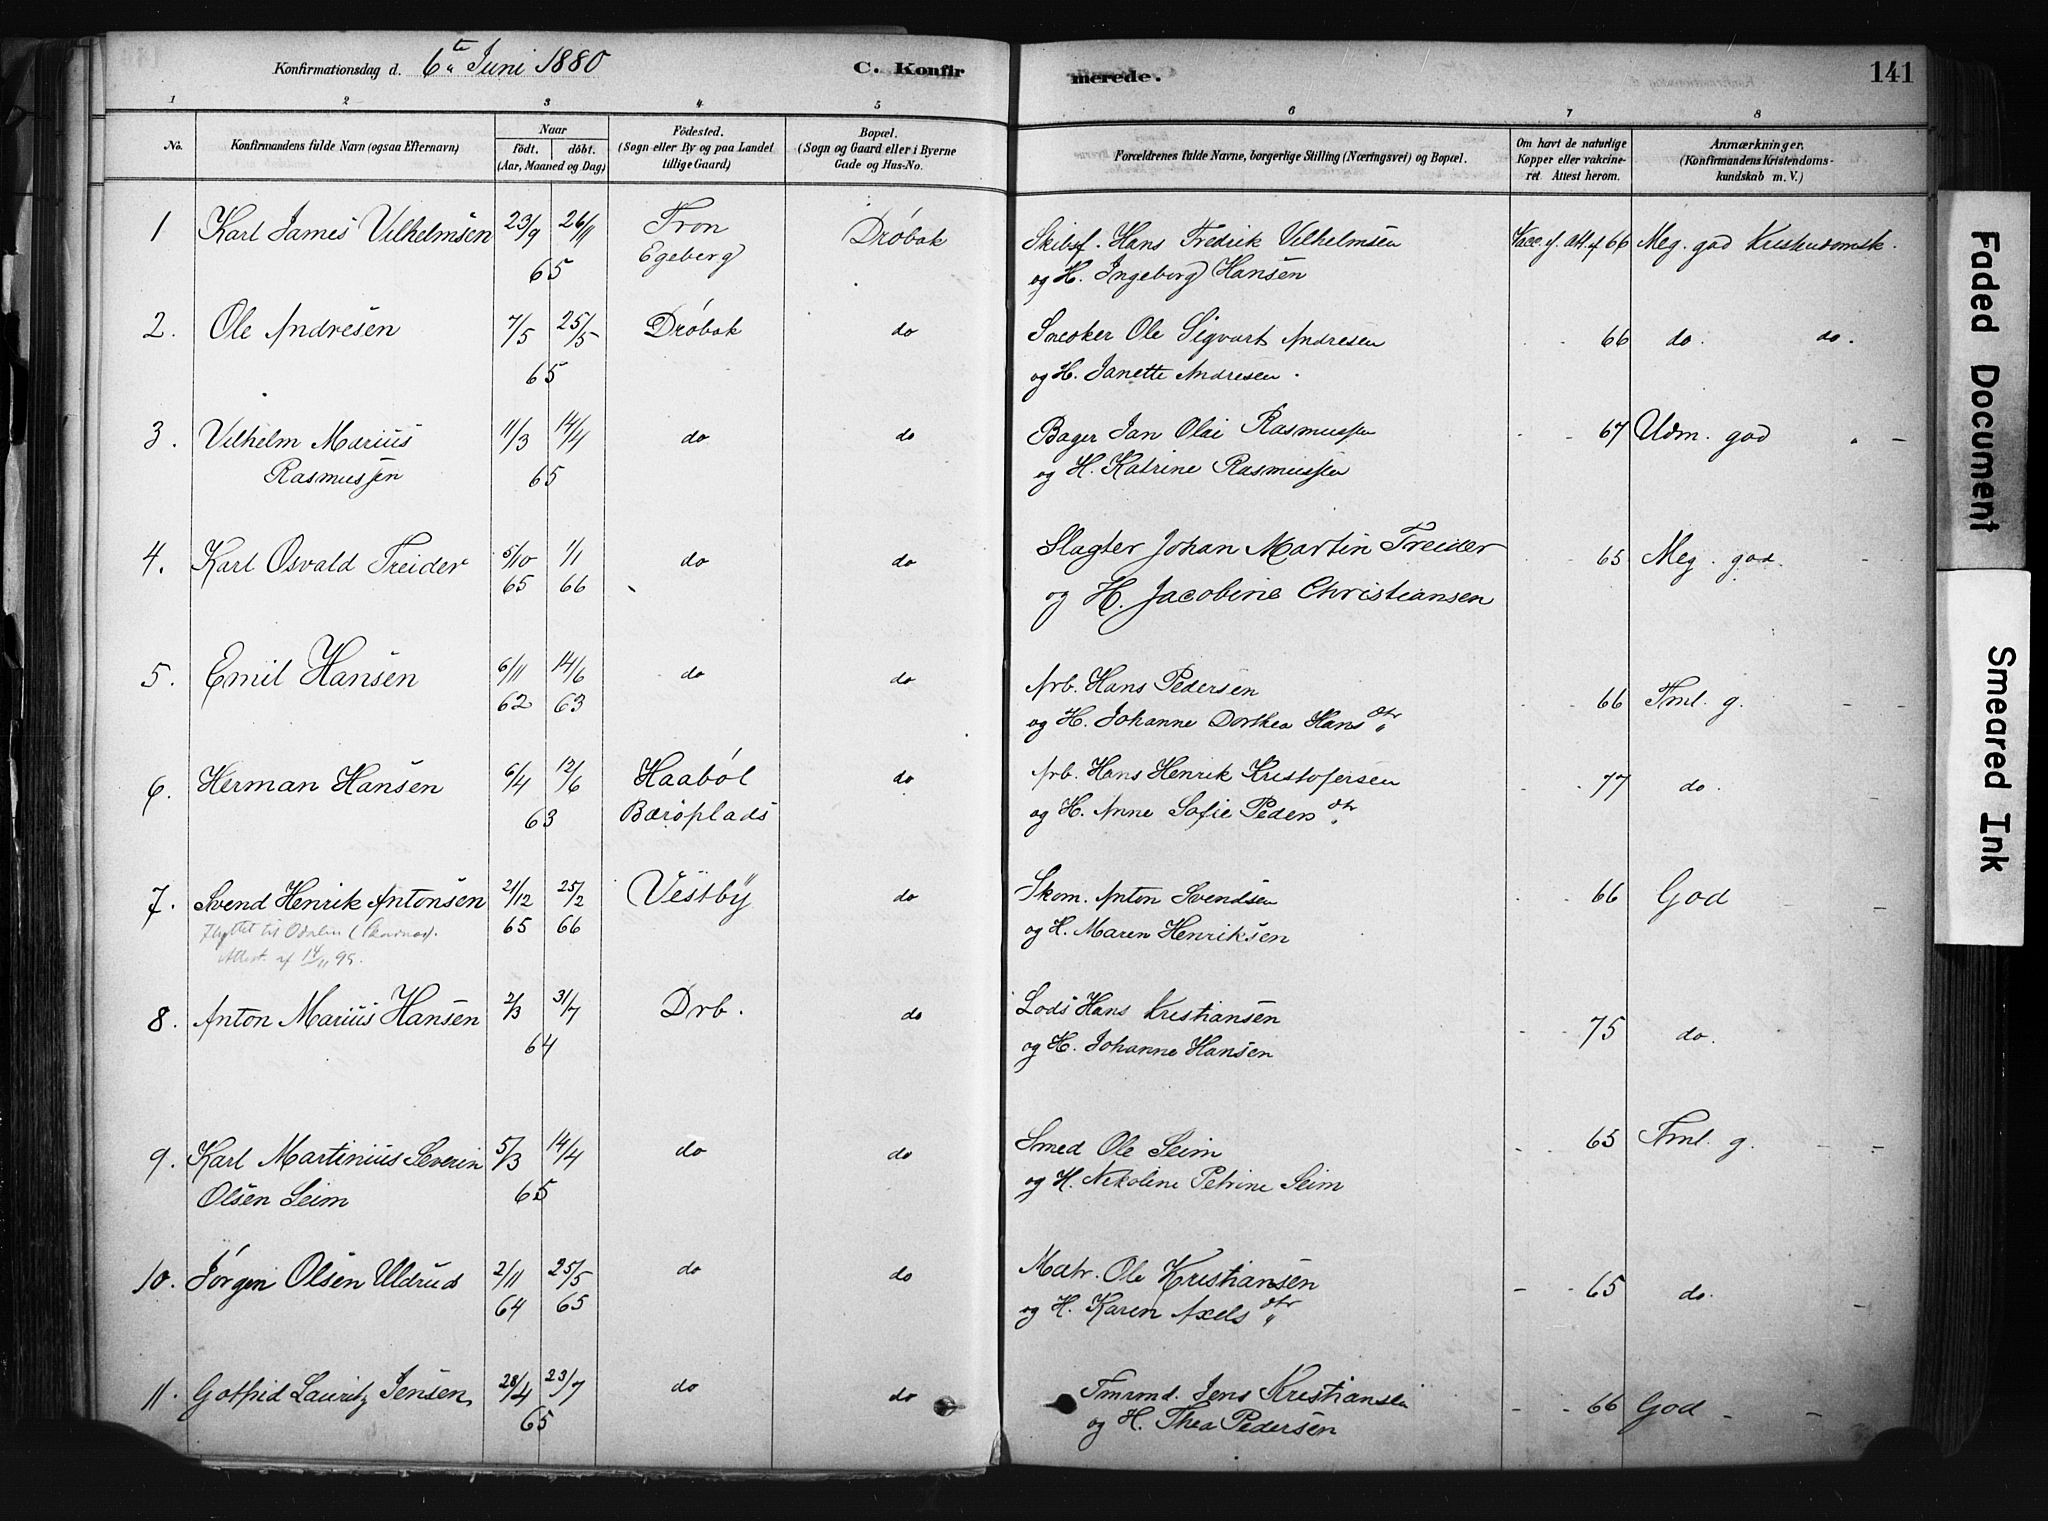 Konfirmationsdag d. 6te Juni 1880 C. Konfirmerede. 141
1 2 3 4 5 6 7 8
No. Konfirmandens fulde Navn (ogsaa Efternavn) Naar födt. döbt. (Aar, Maaned og Dag) Födested. (Sogn eller By og paa Landet tillige Gaard) Bopæl. (Sogn og Gaard eller i Byerne Gade og Hus-No. Forældrenes fulde Navne, borgerlige Stilling (Næringsvei) og Bopæl. Om havt de naturlige Kopper eller vakcineret Attest herom. Anmærkninger. (Konfirmandens Kristendomskundskab m. V.)
1 Karl James Vilhelmsen 23/9 26/11 Fron Drøbak Skibsf. Hans Fredrik Vilhelmsen Vacc. if. att. af 66 Meg. god Kristendomsk.
65 Egeberg og H. Ingeborg Hansen
2. Ole Andresen 7/5 25/5 Drøbak do Snedker Ole Sigvart Andresen 66 do. do.
65 og H. Janette Andresen.
3. Vilhelm Marius 11/3 14/4 do do Bager Jan Olai Rasmussen 67 Udm. god
Rasmussen 65 og H. Katrine Rasmussen
4. Karl Osvald Treider 5/10 1/1 do do Slagter Johan Martin Treider 65 Meg. god.
65 66 og H. Jacobine Christiansen
5. Emil Hansen 6/11 14/6 do do Arb. Hans Pedersen 66 Tml. g.
62 63 og H. Johanne Dorthea Hans dtr
6. Herman Hansen 6/4 12/6 Haabøl do. Arb. Hans Henrik Kristofersen 77 do.
63 Bærøplads og H. Anne Sofie Peders dtr
7. Svend Henrik Antonsen 21/12 25/2 Vestby do Skom. Anton Svendsen 66 God
Flyttet til Odalen 65 66 og H. Maren Henriksen
Attest. af 14/11 99.
8. Anton Marius Hansen 2/3 31/7 Drb. do Lods Hans Kristiansen 75 do.
64 og H. Johanne Hansen
9. Karl Martinius Severin 5/3 14/4 do do Smed Ole Seim 65 Tml. g.
Olsen Seim 65 og H. Nikoline Petrine Seim
10. Jørgen Olsen Uldrud 2/11 25/5 do do Matr. Ole Kristiansen 65 do.
64 65 og H. Karen Axels dtr
11. Gotfrid Lauritz Jensen 28/4 23/7 do do Tmrmd. Jens Kristiansen 66 God
65 og H. Thea Pedersen
Faded Document
Smeared Ink